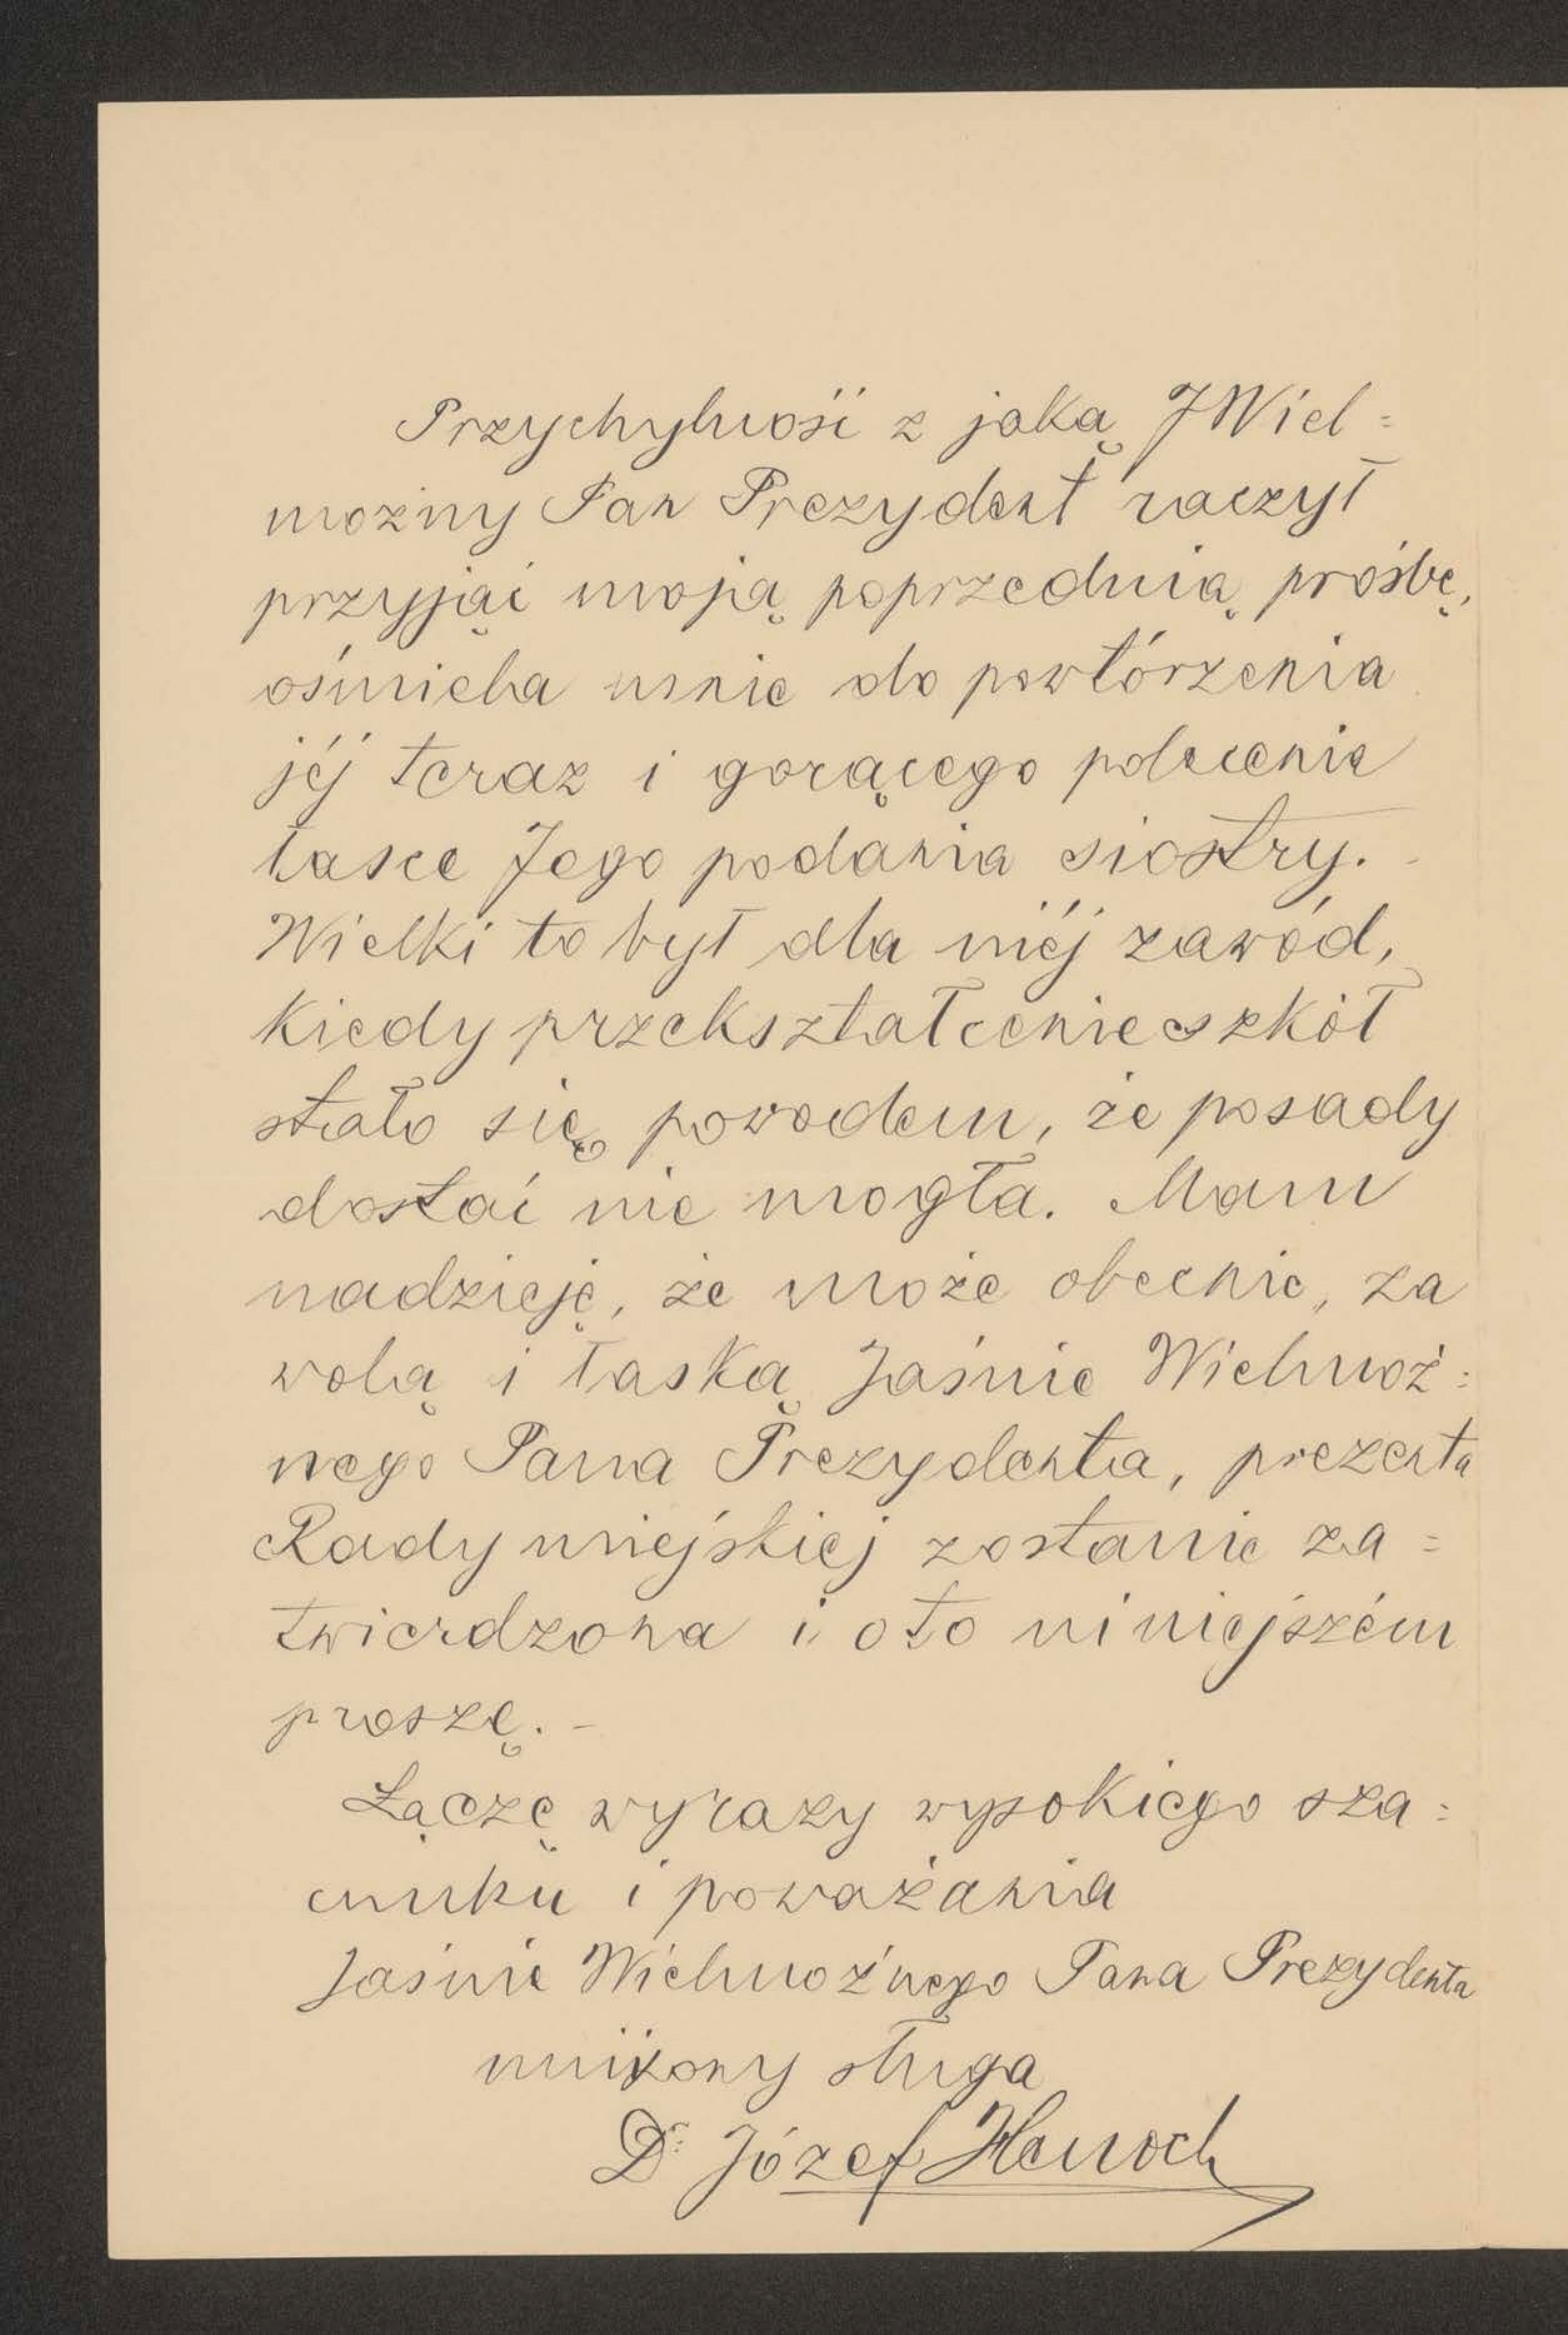 Przychylność z jaką JWiel=
możny Pan Prezydent raczył
przyjąć moją poprzednią prośbę,
ośmiela mnie do powtórzenia
jéj teraz i gorącego polecenia
łasce Jego podania siostry.
Wielki to był dla niéj zawód,
kiedy przekształcenie szkół
stało się powodem, że posady
dostać nie mogła. Mam
nadzieję, że może obecnie, za
wolą i łaską Jaśnie Wielmoż=
nego Pana Prezydenta, prezenta
Rady miejskiej zostanie za=
twierdzona i o to niniejszém
proszę. –
Łączę wyrazy wysokiego sza=
cunku i poważania
Jaśnie Wielmożnego Pana Prezydenta
uniżony sługa
Dr. Józef Henoch